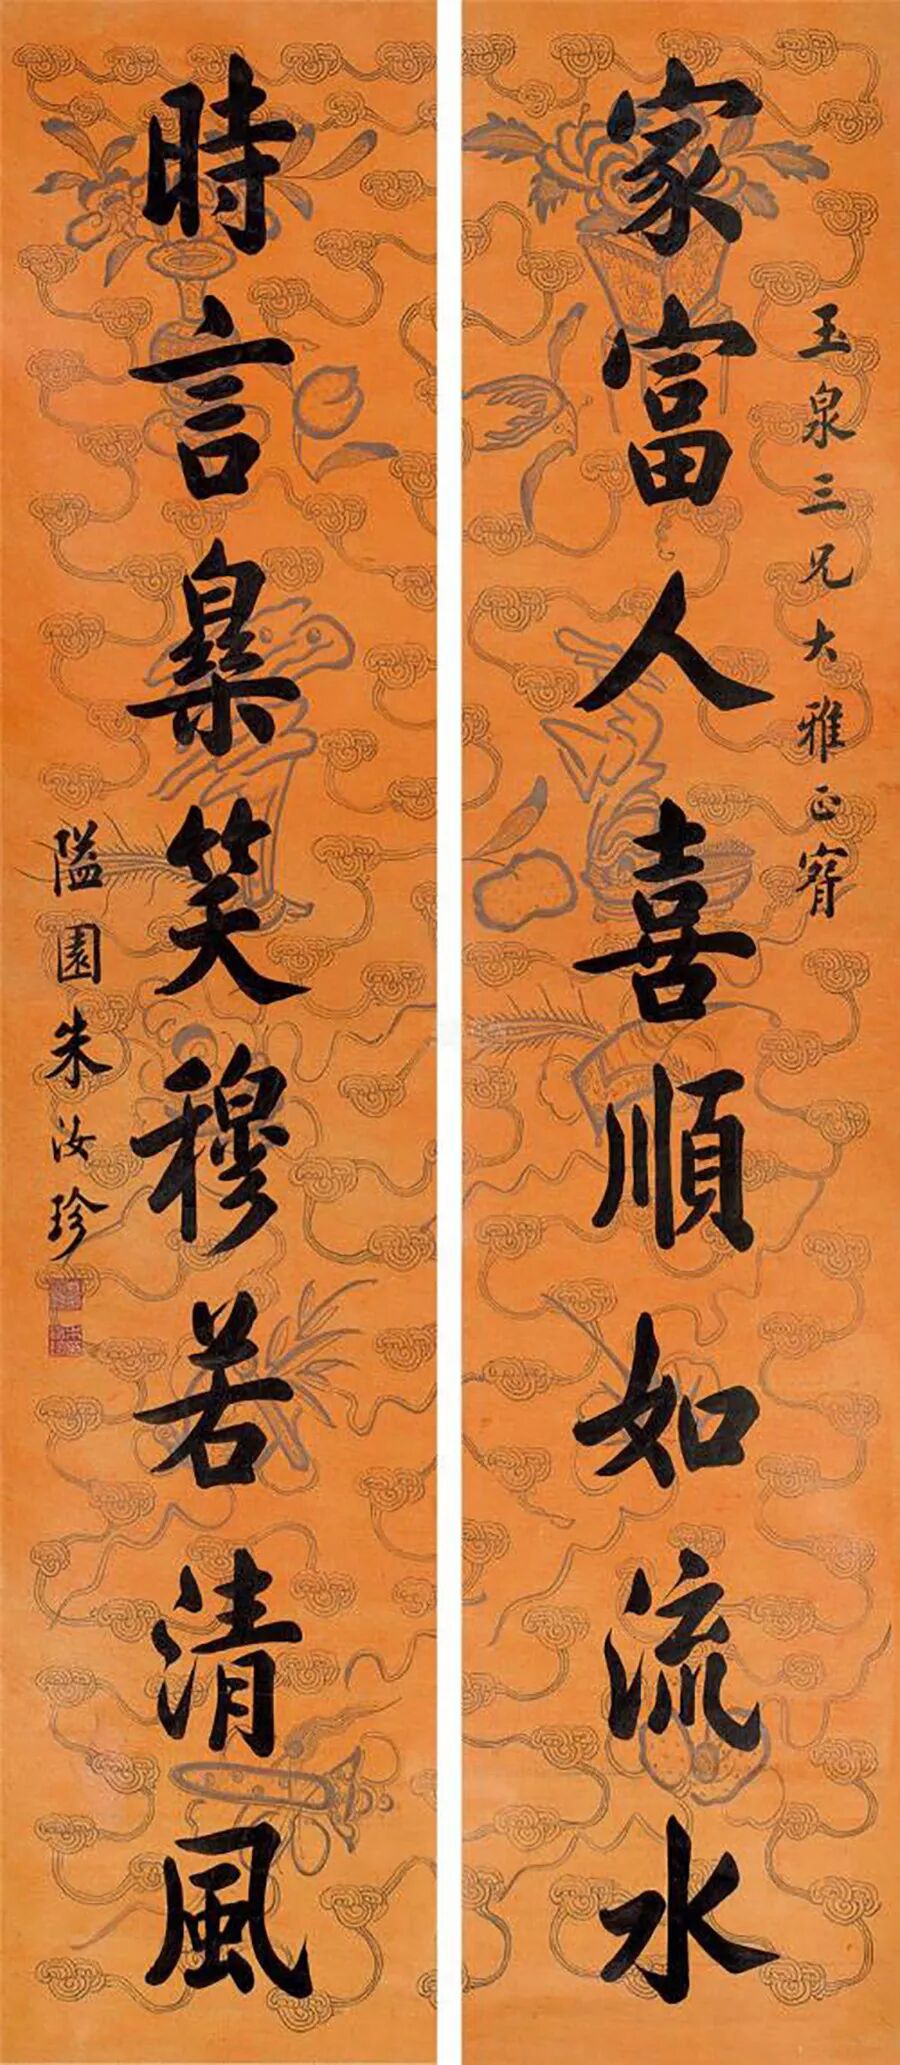 玉泉三兄大雅正
家富人喜順如流水
時言樂笑穆若清風
隘園朱汝珍